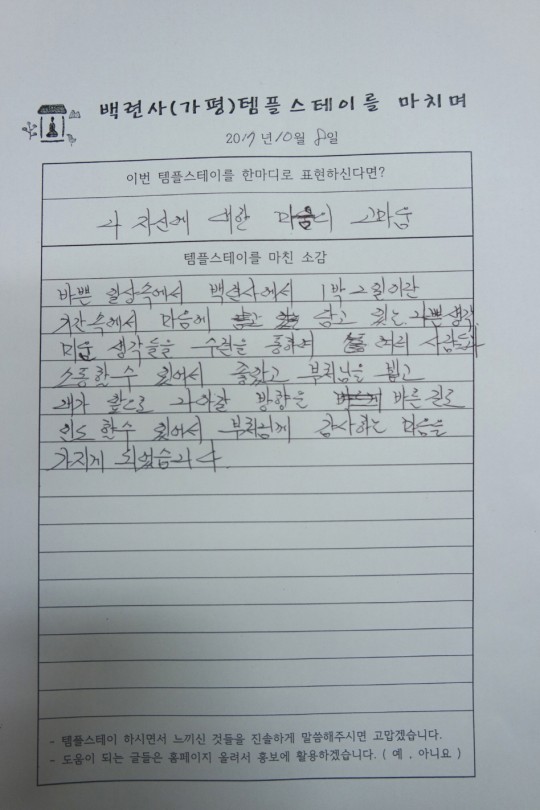 백련사(가평)템플스테이를 마치며
2017년 10월 8일
이번 템플스테이를 한마디로 표현하신다면?
나 자신에 대한 미움의 고마움
템플스테이를 마친 소감
바쁜 일상속에서 백련사에서 1박 2일이란
기간속에서 마음에 담고 있는 나쁜생각
미운 생각들을 수련을 통하여 여러 사람들과
소통할 수 있어서 좋았고 부처님을 뵙고
내가 앞으로 나아갈 방향을 바른 길로
인도 할수 있어서 부처님께 감사하는 마음을
가지게 되었습니다.
- 템플스테이 하시면서 느끼신 것들을 진솔하게 말씀해주시면 고맙겠습니다.
- 도움이 되는 글들은 홈페이지 올려서 홍보에 활용하겠습니다. ( 예 , 아니요 )